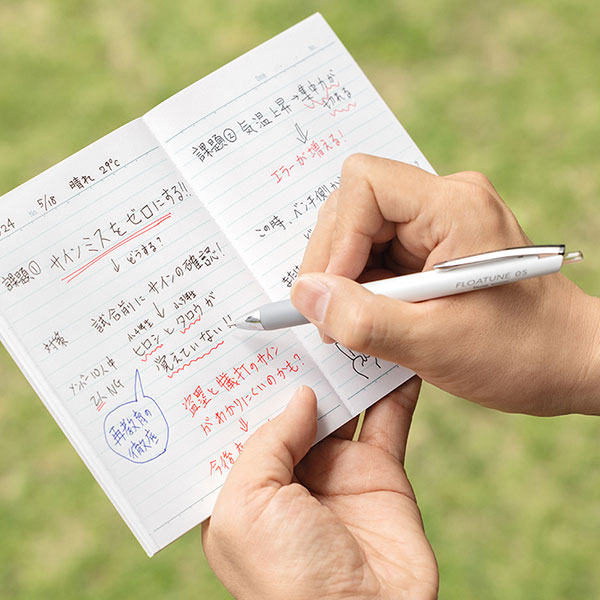 24 5/18 晴れ 29℃
No.
課題① サインミスをゼロにする!!
↓どうする?
対策 試合前にサインの確認!
メンバー10人中
2人NG
小4学生 小4学生
ヒロシとタロウが
覚えていない!!
再教育の
徹底
盗塁と犠打のサイン
がわかりにくいのかも?
↓
今後
Date
No.
課題② 気温上昇→集中力が
切れる
エラーが増える!
この時、ベンチ側か
FLOATUNE 05